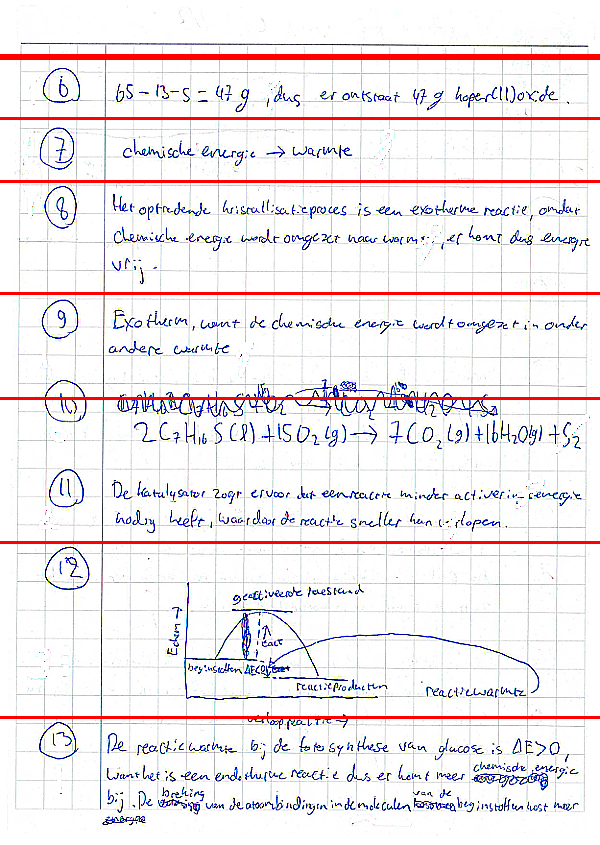 6 65 - 13 - 5 = 47 g, dus er ontstaat 47 g koper(II)oxide.
7 chemische energie → warmte
8 Het optredende kristallisatieproces is een exotherme reactie, omdat
chemische energie wordt omgezet naar warmte, er komt dus energie
vrij.
9 Exotherm, want de chemische energie werdt omgezet in onder
andere warmte.
10
2C₇H₁₆S(l) + 15O₂(g) → 7CO₂(g) + 16H₂O(g) + S₂
11 De katalysator zorgt ervoor dat een reactie minder activeringsenergie
nodig heeft, waardoor de reactie sneller kan verlopen.
12
geactiveerde toestand
Echem →
Eact
beginstoffen ΔE<0
reactieproducten
reactiewarmte
verloop reactie →
13 De reactiewarmte bij de fotosynthese van glucose is ΔE>0,
want het is een endotherme reactie dus er komt meer chemische energie
bij. De breking van de atoombindingen in de moleculen van de beginstoffen kost meer
energie